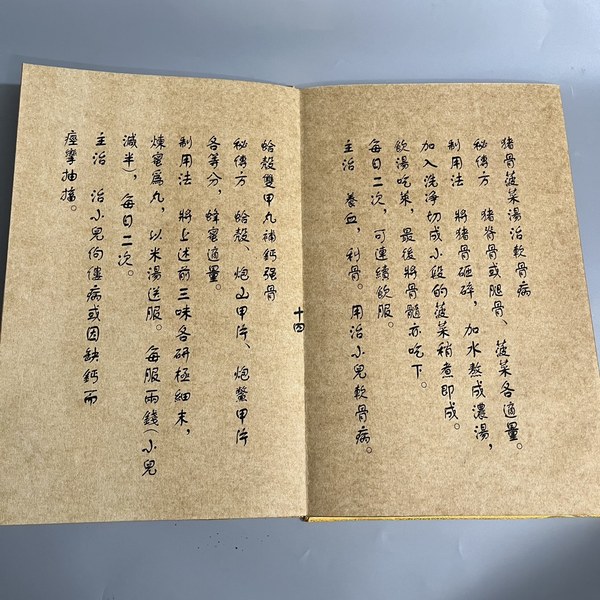 豬骨菠菜湯治軟骨病
秘傳方　豬脊骨或腿骨、菠菜各適量。
制用法　將豬骨砸碎，加水熬成濃湯，
加入洗淨切成小段的菠菜稍煮即成。
飲湯吃菜，最後將骨髓亦吃下。
每日二次，可連續飲服。
主治　養血，利骨。用治小兒軟骨病。
十四
蛤殼雙甲丸補鈣强骨
秘傳方　蛤殼、炮山甲片、炮鱉甲片
各等分，蜂蜜適量。
制用法　將上述前三味各研極細末，
煉蜜爲丸，以米湯送服。每服兩錢（小兒
減半），每日二次。
主治　治小兒佝僂病或因缺鈣而
痙攣抽搐。